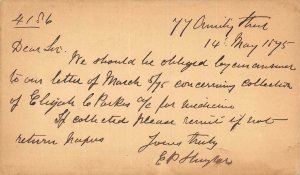 4156
77 Amity Street
14 May 1895
Dear Sir.
We should be obliged by an answer
to our letter of March 5/95 concerning collection
of Elijah C Parkes a/c for medicine
If collected please remit if not
return papers
Yours truly
E P